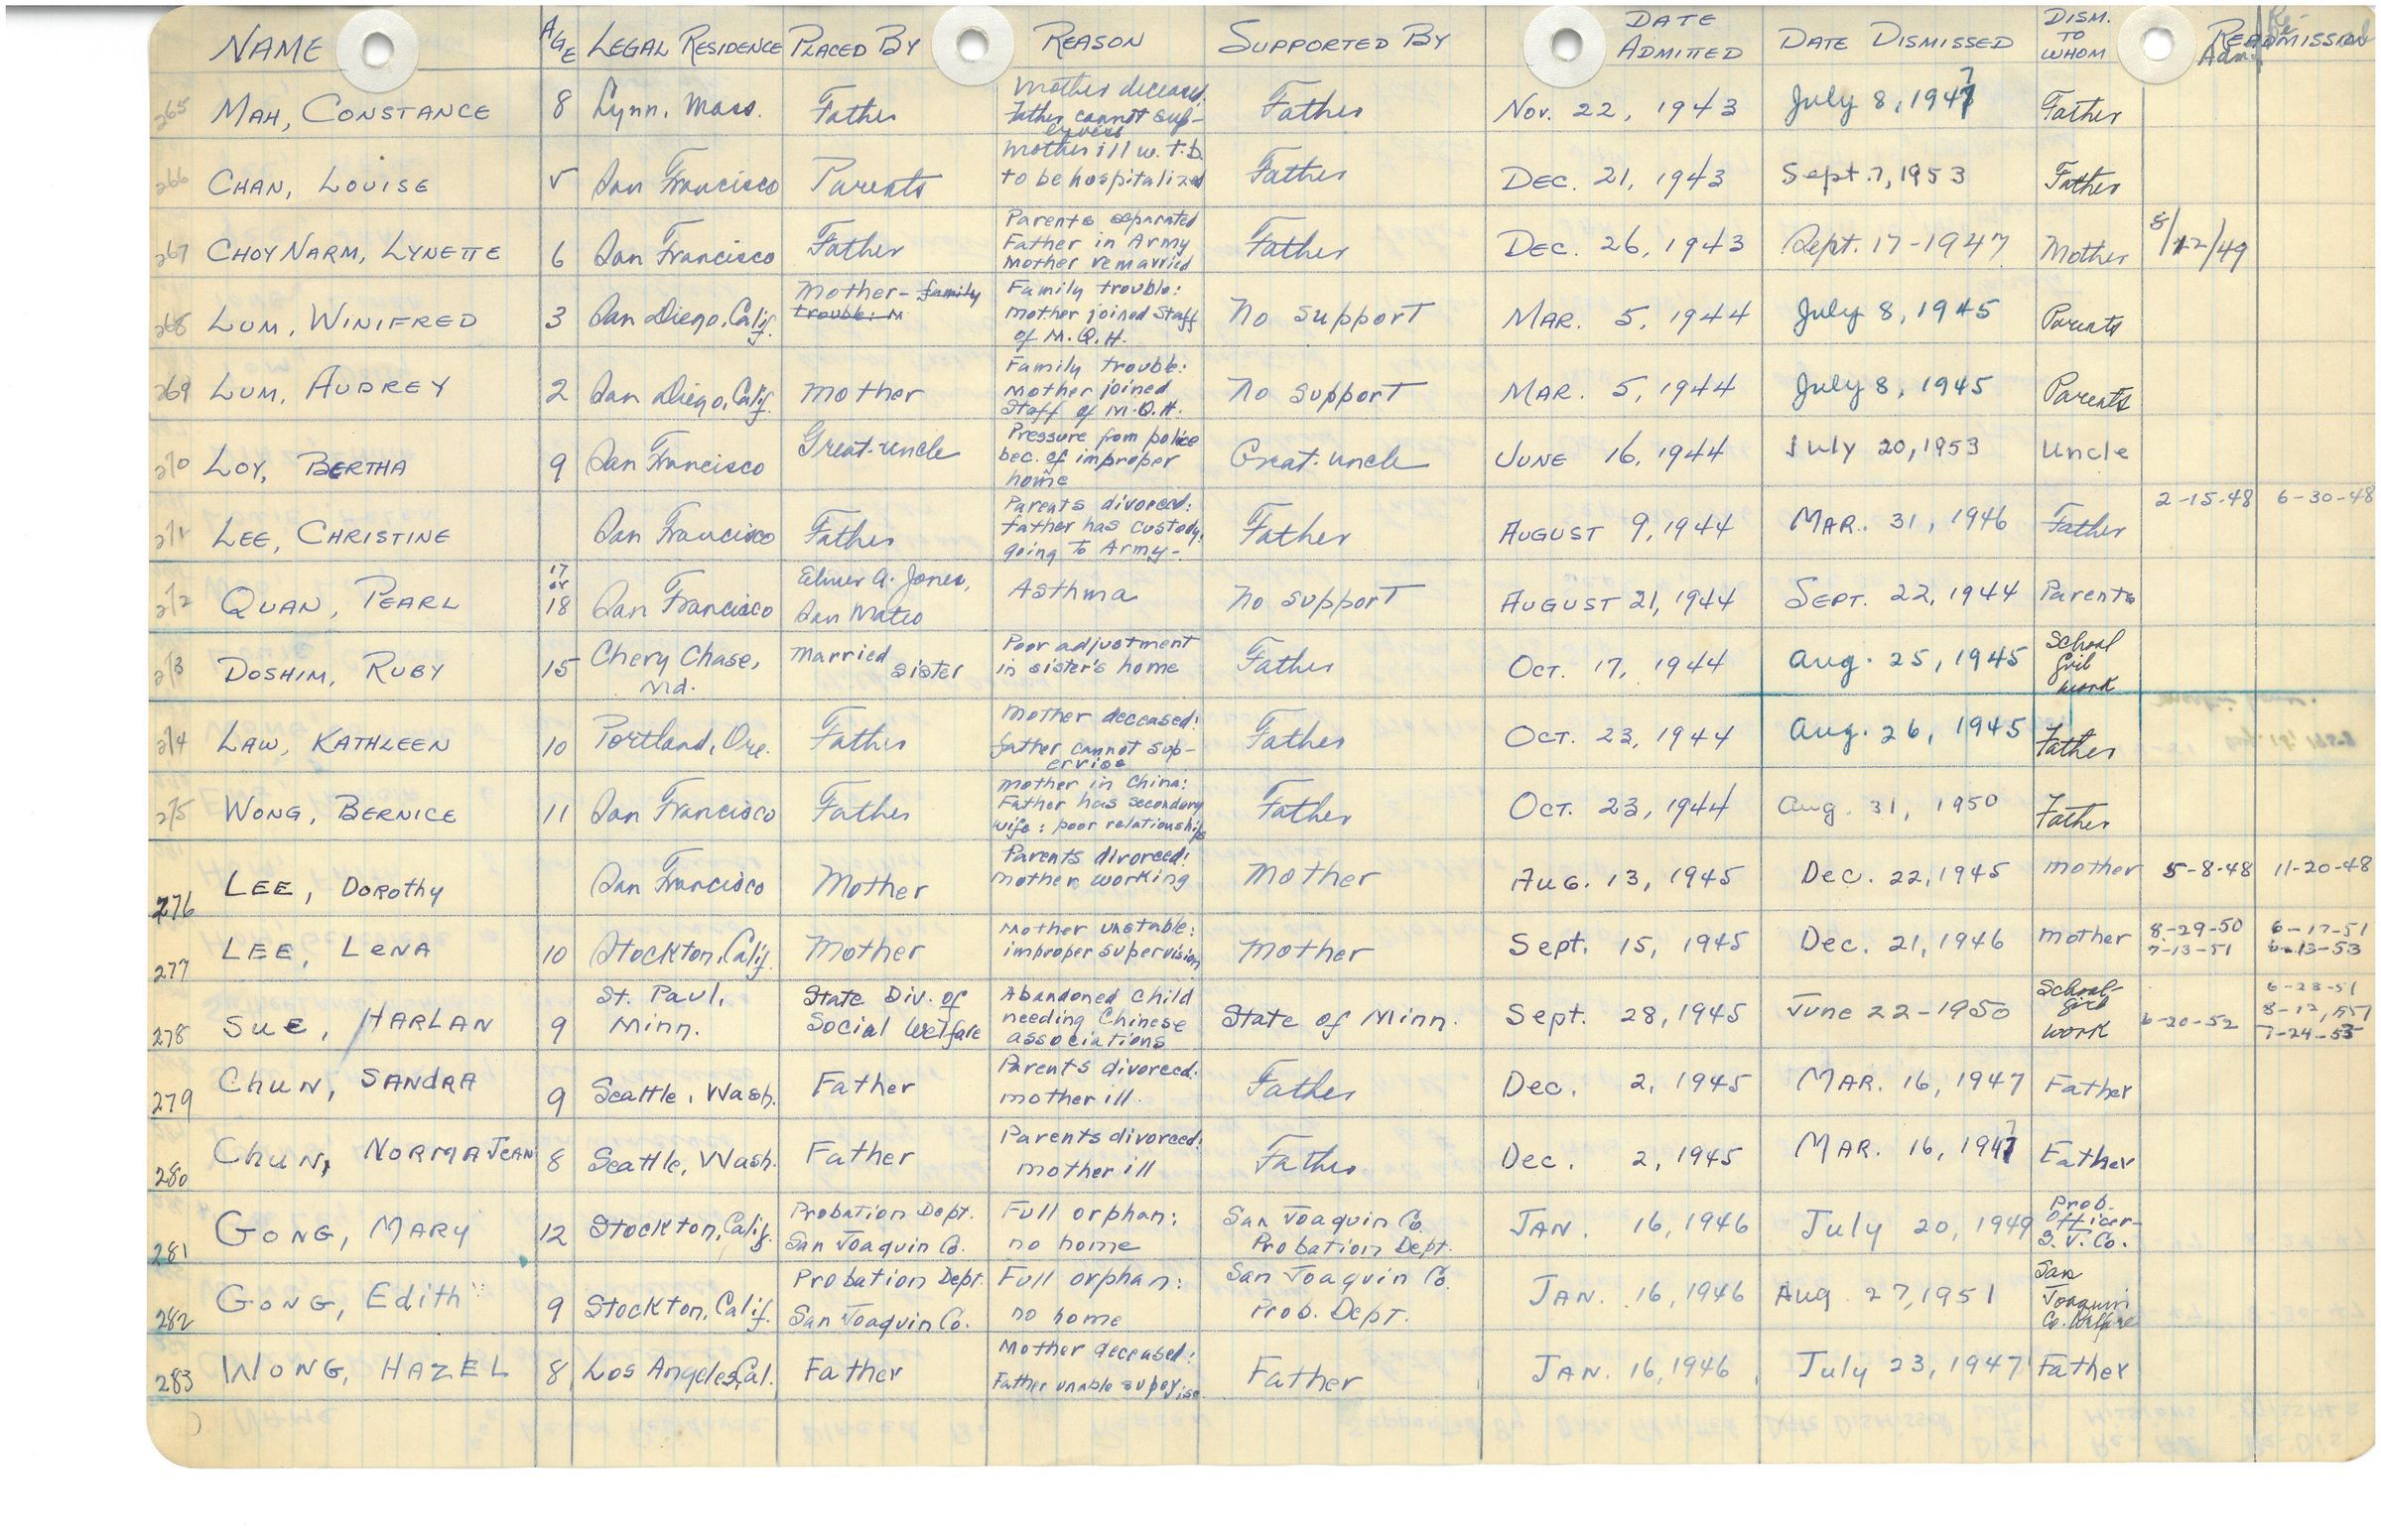 NAME AGE LEGAL RESIDENCE PLACED BY REASON SUPPORTED BY DATE ADMITTED DATE DISMISSED DISM. TO WHOM READMISSION
265 MAH, CONSTANCE 8 Lynn, Mass. Father Mother deceased, Father cannot supervise Father Nov. 22, 1943 July 8, 1947 Father
266 CHAN, LOUISE 5 San Francisco Parents Mother ill w. T.b. to be hospitalized Father DEC. 21, 1943 Sept. 7, 1953 Father
267 CHOY NARM, LYNETTE 6 San Francisco Father Parents separated Father in Army Mother remarried Father DEC. 26, 1943 Sept. 17-1947 Mother 8/12/49
268 LUM, WINIFRED 3 San Diego, Calif. Mother- family trouble: M Family trouble: Mother joined Staff of M.O.H. No support MAR. 5, 1944 July 8, 1945 Parents
269 LUM, AUDREY 2 San Diego, Calif. Mother Family trouble: Mother joined Staff of M.O.H. No support MAR. 5, 1944 July 8, 1945 Parents
270 LOY, BERTHA 9 San Francisco Great-uncle Pressure from police bec. of improper home Great-uncle JUNE 16, 1944 July 20, 1953 Uncle
271 LEE, CHRISTINE San Francisco Father Parents divorced: father has custody, going to Army- Father AUGUST 9, 1944 MAR. 31, 1946 Father 2-15-48 6-30-48
272 QUAN, PEARL 17 or 18 San Francisco Elmer A. Jones, San Mateo Asthma No support AUGUST 21, 1944 SEPT. 22, 1944 Parents
273 DOSHIM, RUBY 15 Chevy Chase, Md. Married sister Poor adjustment in sister's home Father OCT. 17, 1944 Aug. 25, 1945 School girl work
274 LAW, KATHLEEN 10 Portland, Ore. Father Mother deceased: father cannot supervise Father OCT. 23, 1944 Aug. 26, 1945 Father
275 WONG, BERNICE 11 San Francisco Father Mother in China: Father has secondary wife: poor relationships Father OCT. 23, 1944 Aug. 31, 1950 Father
276 LEE, DOROTHY San Francisco Mother Parents divorced: Mother working Mother AUG. 13, 1945 Dec. 22, 1945 Mother 5-8-48 11-20-48
277 LEE, LENA 10 Stockton, Calif. Mother Mother unstable: improper supervision Mother Sept. 15, 1945 Dec. 21, 1946 Mother 8-29-50 6-17-51 7-13-51 6-13-53
278 SUE, HARLAN 9 St. Paul, Minn. State Div. of Social Welfare Abandoned child needing Chinese associations State of Minn. Sept. 28, 1945 June 22-1950 School-girl work 6-20-52 6-23-51 8-12, 1951 7-24-53
279 Chun, SANDRA 9 Seattle, Wash. Father Parents divorced. mother ill. Father Dec. 2, 1945 MAR. 16, 1947 Father
280 Chun, NORMA JEAN 8 Seattle, Wash. Father Parents divorced: mother ill Father Dec. 2, 1945 MAR. 16, 1947 Father
281 GONG, MARY 12 Stockton, Calif. Probation Dept. San Joaquin Co. Full orphan: no home San Joaquin Co. Probation Dept. JAN. 16, 1946 July 20, 1949 Prob. Officer- S.J. Co.
282 GONG, Edith 9 Stockton, Calif. Probation Dept. San Joaquin Co. Full orphan: no home San Joaquin Co. Prob. Dept. JAN. 16, 1946 Aug 27, 1951 San Joaquin Co. Welfare
283 WONG, HAZEL 8 Los Angeles, Cal. Father Mother deceased: Father unable supervise Father JAN. 16, 1946 July 23, 1947 Father